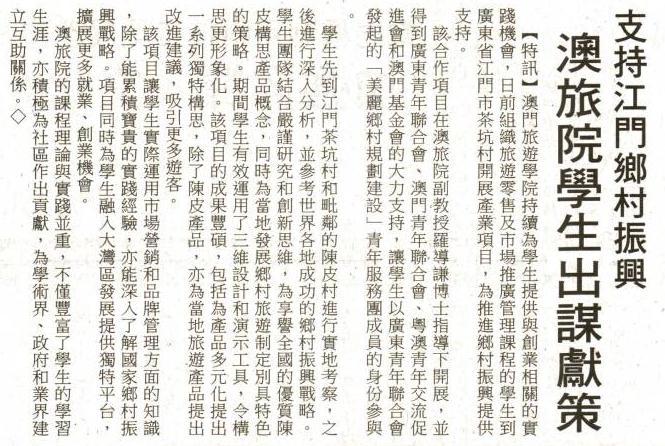 支持江門鄉村振興
澳旅院學生出謀獻策
【特訊】澳門旅遊學院持續為學生提供與創業相關的實
踐機會，日前組織旅遊零售及市場推廣管理課程的學生到
廣東省江門市茶坑村開展產業項目，為推進鄉村振興提供
支持。
該合作項目在澳旅院副教授羅導謙博士指導下開展，並
得到廣東青年聯合會、澳門青年聯合會、粵澳青年交流促
進會和澳門基金會的大力支持，讓學生以廣東青年聯合會
發起的「美麗鄉村規劃建設」青年服務團成員的身份參與
學生先到江門茶坑村和毗鄰的陳皮村進行實地考察，之
後進行深入分析，並參考世界各地成功的鄉村振興戰略。
學生團隊結合嚴謹研究和創新思維，為享譽全國的優質陳
皮構思產品概念，同時為當地發展鄉村旅遊制定別具特色
的策略。期間學生有效運用了三維設計和演示工具，令構
思更形象化。該項目的成果豐碩，包括為產品多元化提出
一系列獨特構思，除了陳皮產品，亦為當地旅遊產品提出
改進建議，吸引更多遊客。
該項目讓學生實際運用市場營銷和品牌管理方面的知識
，除了能累積寶貴的實踐經驗，亦能深入了解國家鄉村振
興戰略。項目同時為學生融入大灣區發展提供獨特平台，
擴展更多就業、創業機會。
澳旅院的課程理論與實踐並重，不僅豐富了學生的學習
生涯，亦積極為社區作出貢獻，為學術界、政府和業界建
立互助關係。◇